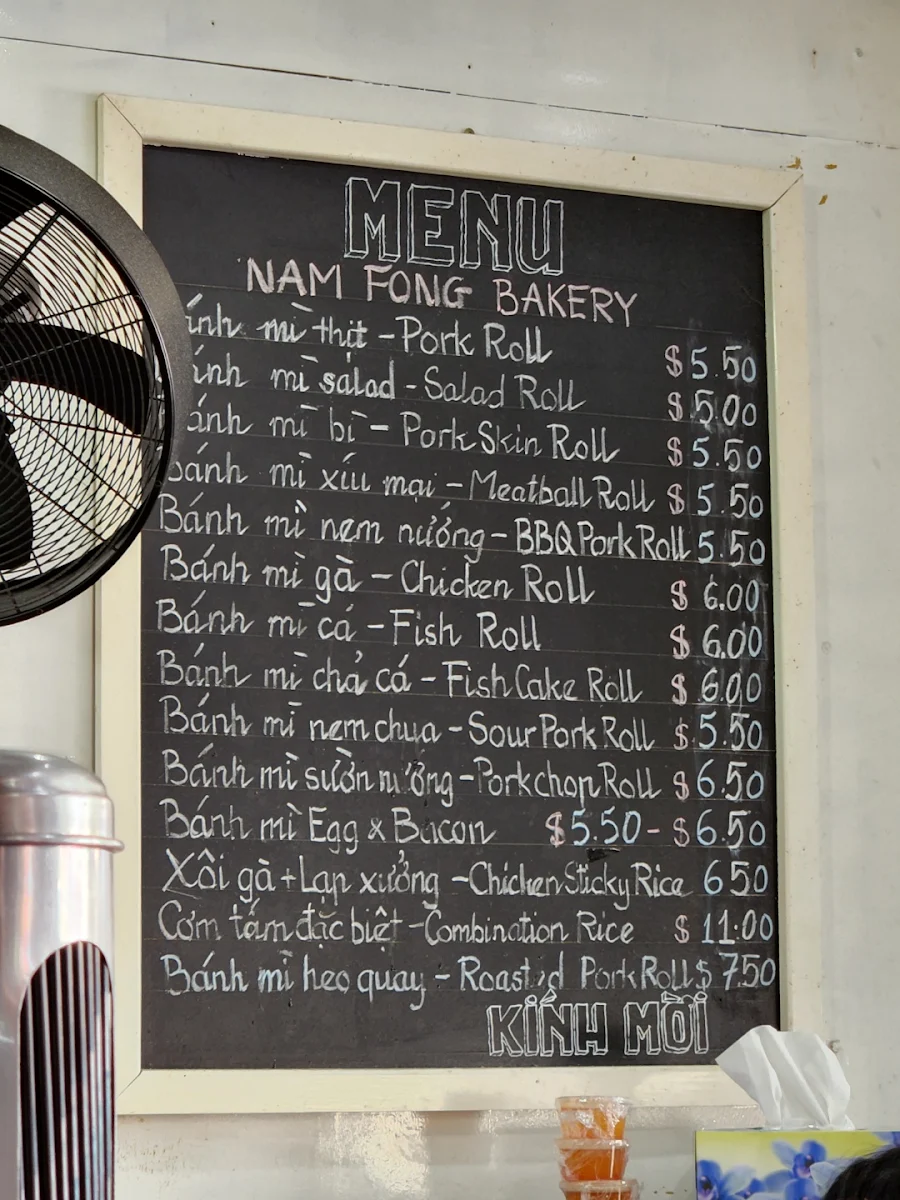 MENU
NAM FONG BAKERY
ánh mì thịt - Pork Roll $5.50
ánh mì salad - Salad Roll $5.00
ánh mì bì - Pork Skin Roll $5.50
Bánh mì xíu mại - Meatball Roll $5.50
Bánh mì nem nướng - BBQ Pork Roll 5.50
Bánh mì gà - Chicken Roll $6.00
Bánh mì cá - Fish Roll $6.00
Bánh mì chả cá - Fish Cake Roll $6.00
Bánh mì nem chua - Sour Pork Roll $5.50
Bánh mì sườn nướng - Porkchop Roll $6.50
Bánh mì Egg & Bacon $5.50 - $6.50
Xôi gà + Lạp xưởng - Chicken Sticky Rice 6 50
Cơm tấm đặc biệt - Combination Rice $11.00
Bánh mì heo quay - Roasted Pork Roll $7.50
KÍNH MỜI